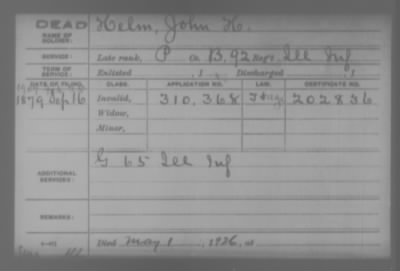 DEAD Helm, John H.
NAME OF SOLDIER:
SERVICE: Late rank, P Co. B, 92 Reg't Ill Inf
TERM OF SERVICE: Enlisted , 1 Discharged , 1
DATE OF FILING. CLASS. APPLICATION NO. LAW. CERTIFICATE NO.
1879 Sep 16 Invalid, 310,368 202836
Widow,
Minor,
ADDITIONAL SERVICES: G 65 Ill Inf
REMARKS:
Died May 1, 1926, at